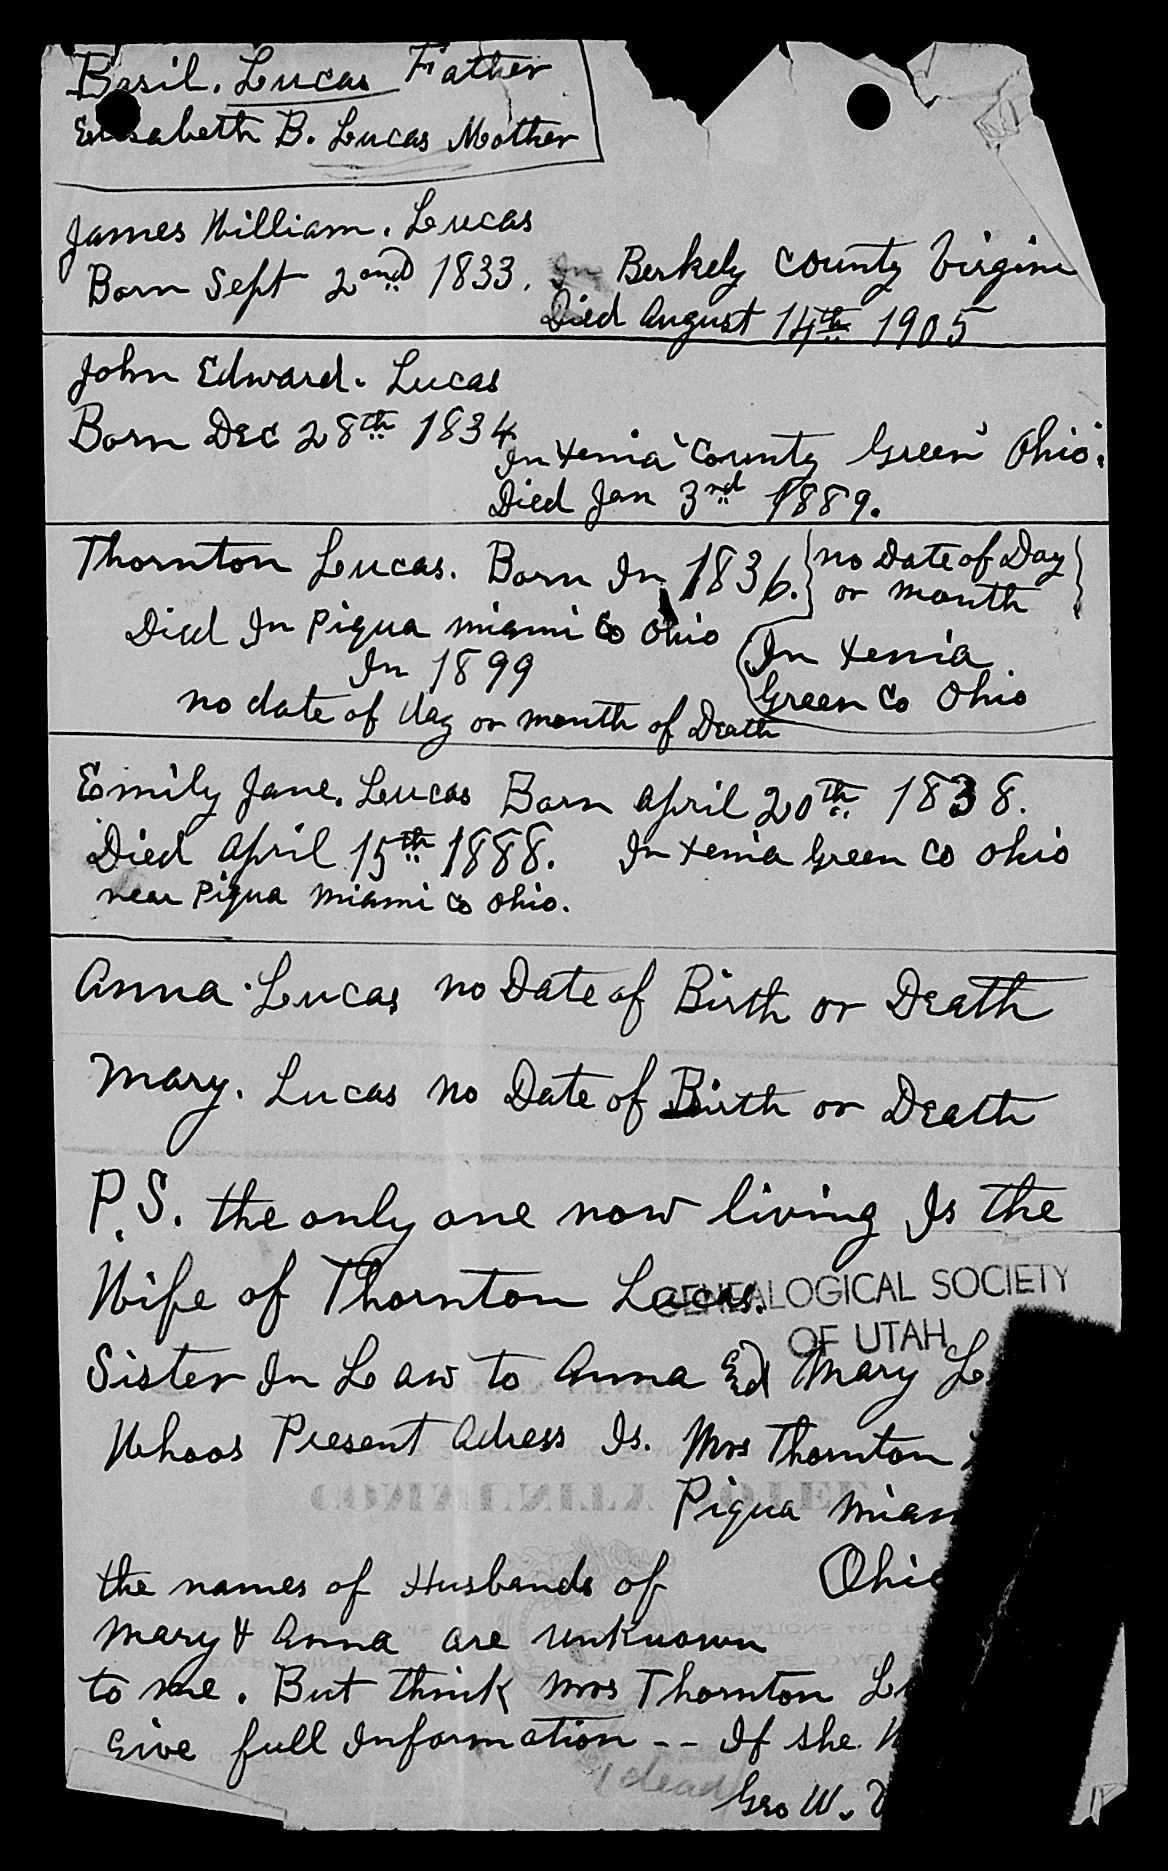 Basil. Lucas Father
Elisabeth B. Lucas Mother
James William. Lucas
Born Sept 2ond 1833. In Berkely County Virgini
Died August 14th 1905
John Edward. Lucas
Born Dec 28th 1834
In Xenia County Green Ohio.
Died Jan 3rd 1889.
Thornton Lucas. Born In 1836. {no Date of Day
or month}
Died In Piqua miami Co Ohio
(In Xenia
In 1899
Green Co Ohio
no date of day or month of Death
Emily Jane. Lucas Born April 20th 1838.
Died April 15th 1888. In Xenia Green Co Ohio
near Piqua Miami Co Ohio.
Anna. Lucas no Date of Birth or Death
Mary. Lucas no Date of Birth or Death
P.S. the only one now living Is the
Wife of Thornton Lucas.
GENEALOGICAL SOCIETY
OF UTAH
Sister In Law to Anna & Mary
Whoos Present Adress Is. Mrs Thornton
Piqua
the names of Husbands of
Mary & Anna are unknown
to me. But think Mrs Thornton
Give full Information -- If she
dead
Geo W.